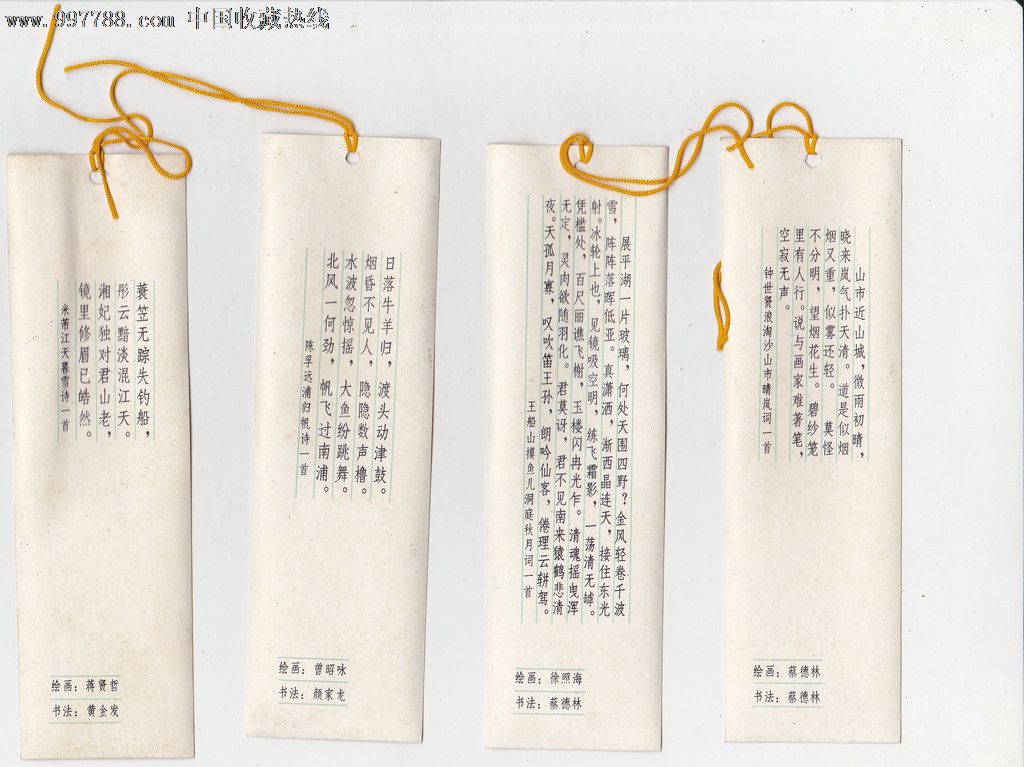 www.997788.com 中国收藏热线
蓑笠无踪失钓船，
彤云黯淡混江天。
湘妃独对君山老，
镜里修眉已皓然。
米芾江天暮雪诗一首
绘画：蒋贤哲
书法：黄金发
日落牛羊归，渡头动津鼓。
烟昏不见人，隐隐数声橹。
水波忽惊摇，大鱼纷跳舞。
北风一何劲，帆飞过南浦。
陈孚远浦归帆诗一首
绘画：曾昭咏
书法：颜家龙
展平湖一片玻璃，何处天围四野？金风轻卷千波
雪，阵阵落晖低亚。真潇洒，渐西晶连天，接住东光
射。冰轮上也，见镜吸空明，练飞霜影，一荡清无罅。
凭槛处，百尺丽谯飞榭，玉楼闪冉光乍。清魂摇曳浑
无定，灵肉欲随羽化。君莫讶，君不见南来猿鹤悲清
夜。天孤月寡，叹吹笛王孙，朗吟仙客，倦理云軿驾。
王船山摸鱼儿洞庭秋月词一首
绘画：徐照海
书法：蔡德林
山市近山城，微雨初晴，
晓来岚气扑天清。道是似烟
烟又重，似雾还轻。莫怪
不分明，望烟花生。碧纱笼
里有人行。说与画家难著笔，
空寂无声。
钟世贤浪淘沙山市晴岚词一首
绘画：蔡德林
书法：蔡德林